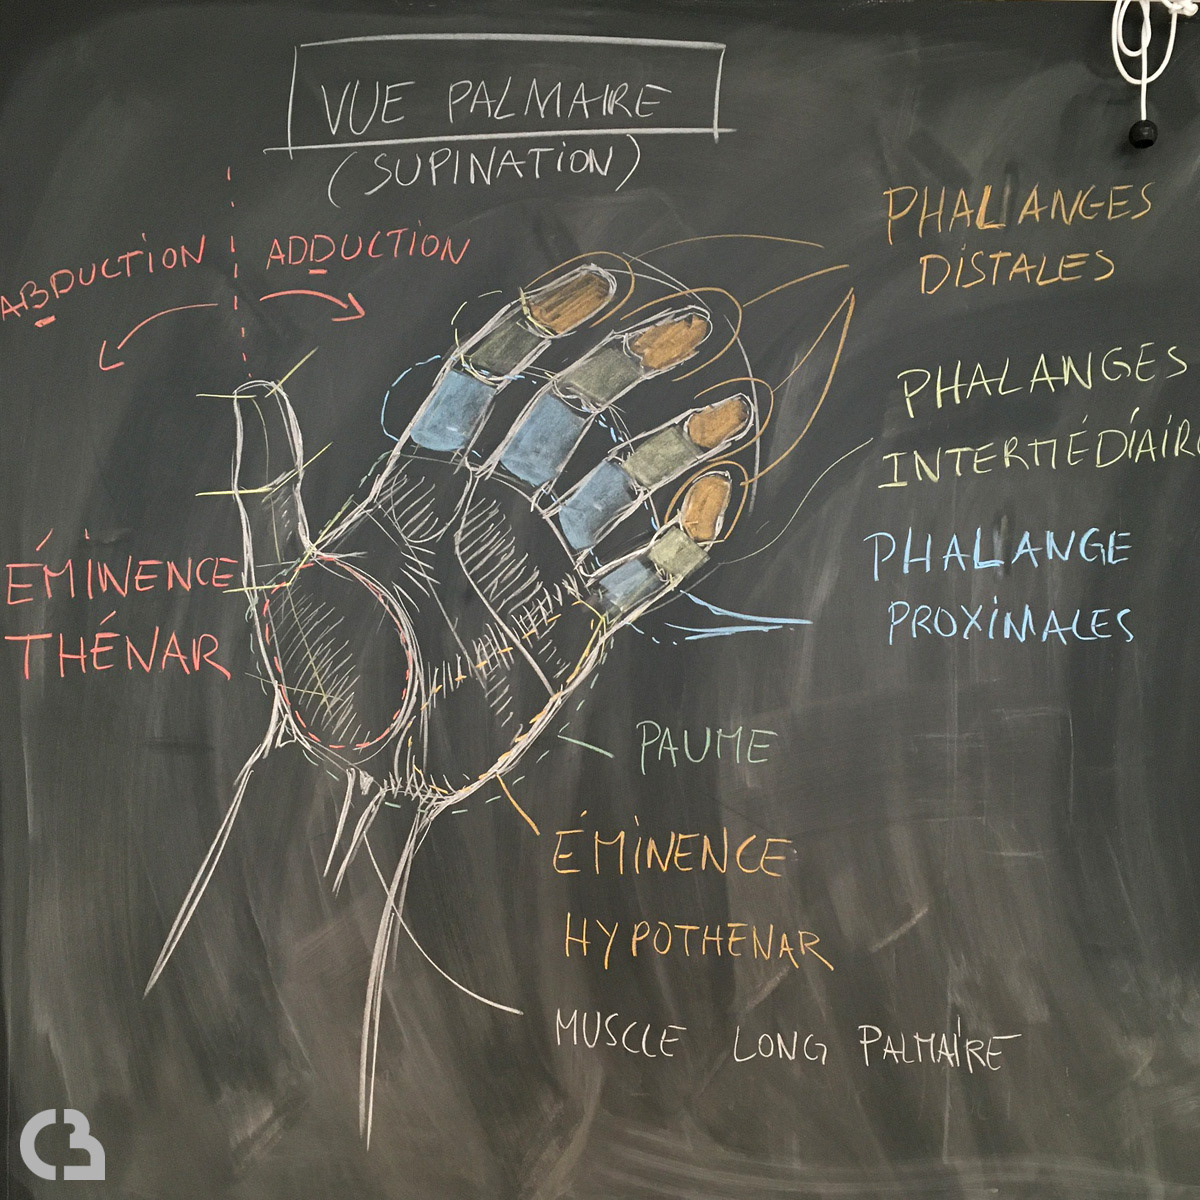 VUE PALMAIRE
(SUPINATION)
ABDUCTION
ADDUCTION
PHALANGES
DISTALES
PHALANGES
INTERMÉDIAIR
PHALANGE
PROXIMALES
ÉMINENCE
THÉNAR
PAUME
ÉMINENCE
HYPOTHENAR
MUSCLE LONG PALMAIRE
CB